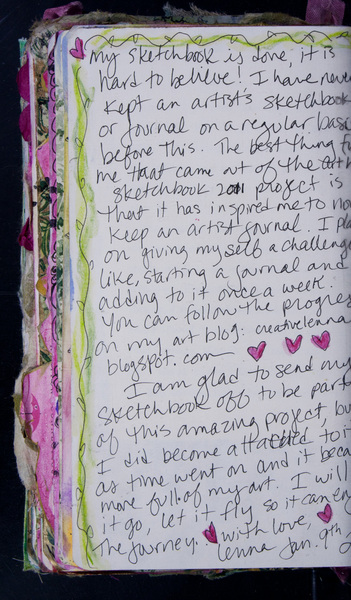 my sketchbook is done, it is
hard to believe! I have never
kept an artist's sketchbook
or journal on a regular basi
before this. The best thing f
me that came out of the art h
sketchbook 2011 project is
that it has inspired me to now
keep an artist journal. I pla
on giving myself a challenge
like, starting a journal and
adding to it once a week.
You can follow the progres
on my art blog: creativelenna
blogspot.com
I am glad to send my
sketchbook off to be part
of this amazing project, bu
I did become attached to i
as time went on and it beca
more full of my art. I will
it go, let it fly so it can en
the journey. with love,
Lenna Jan. 9th